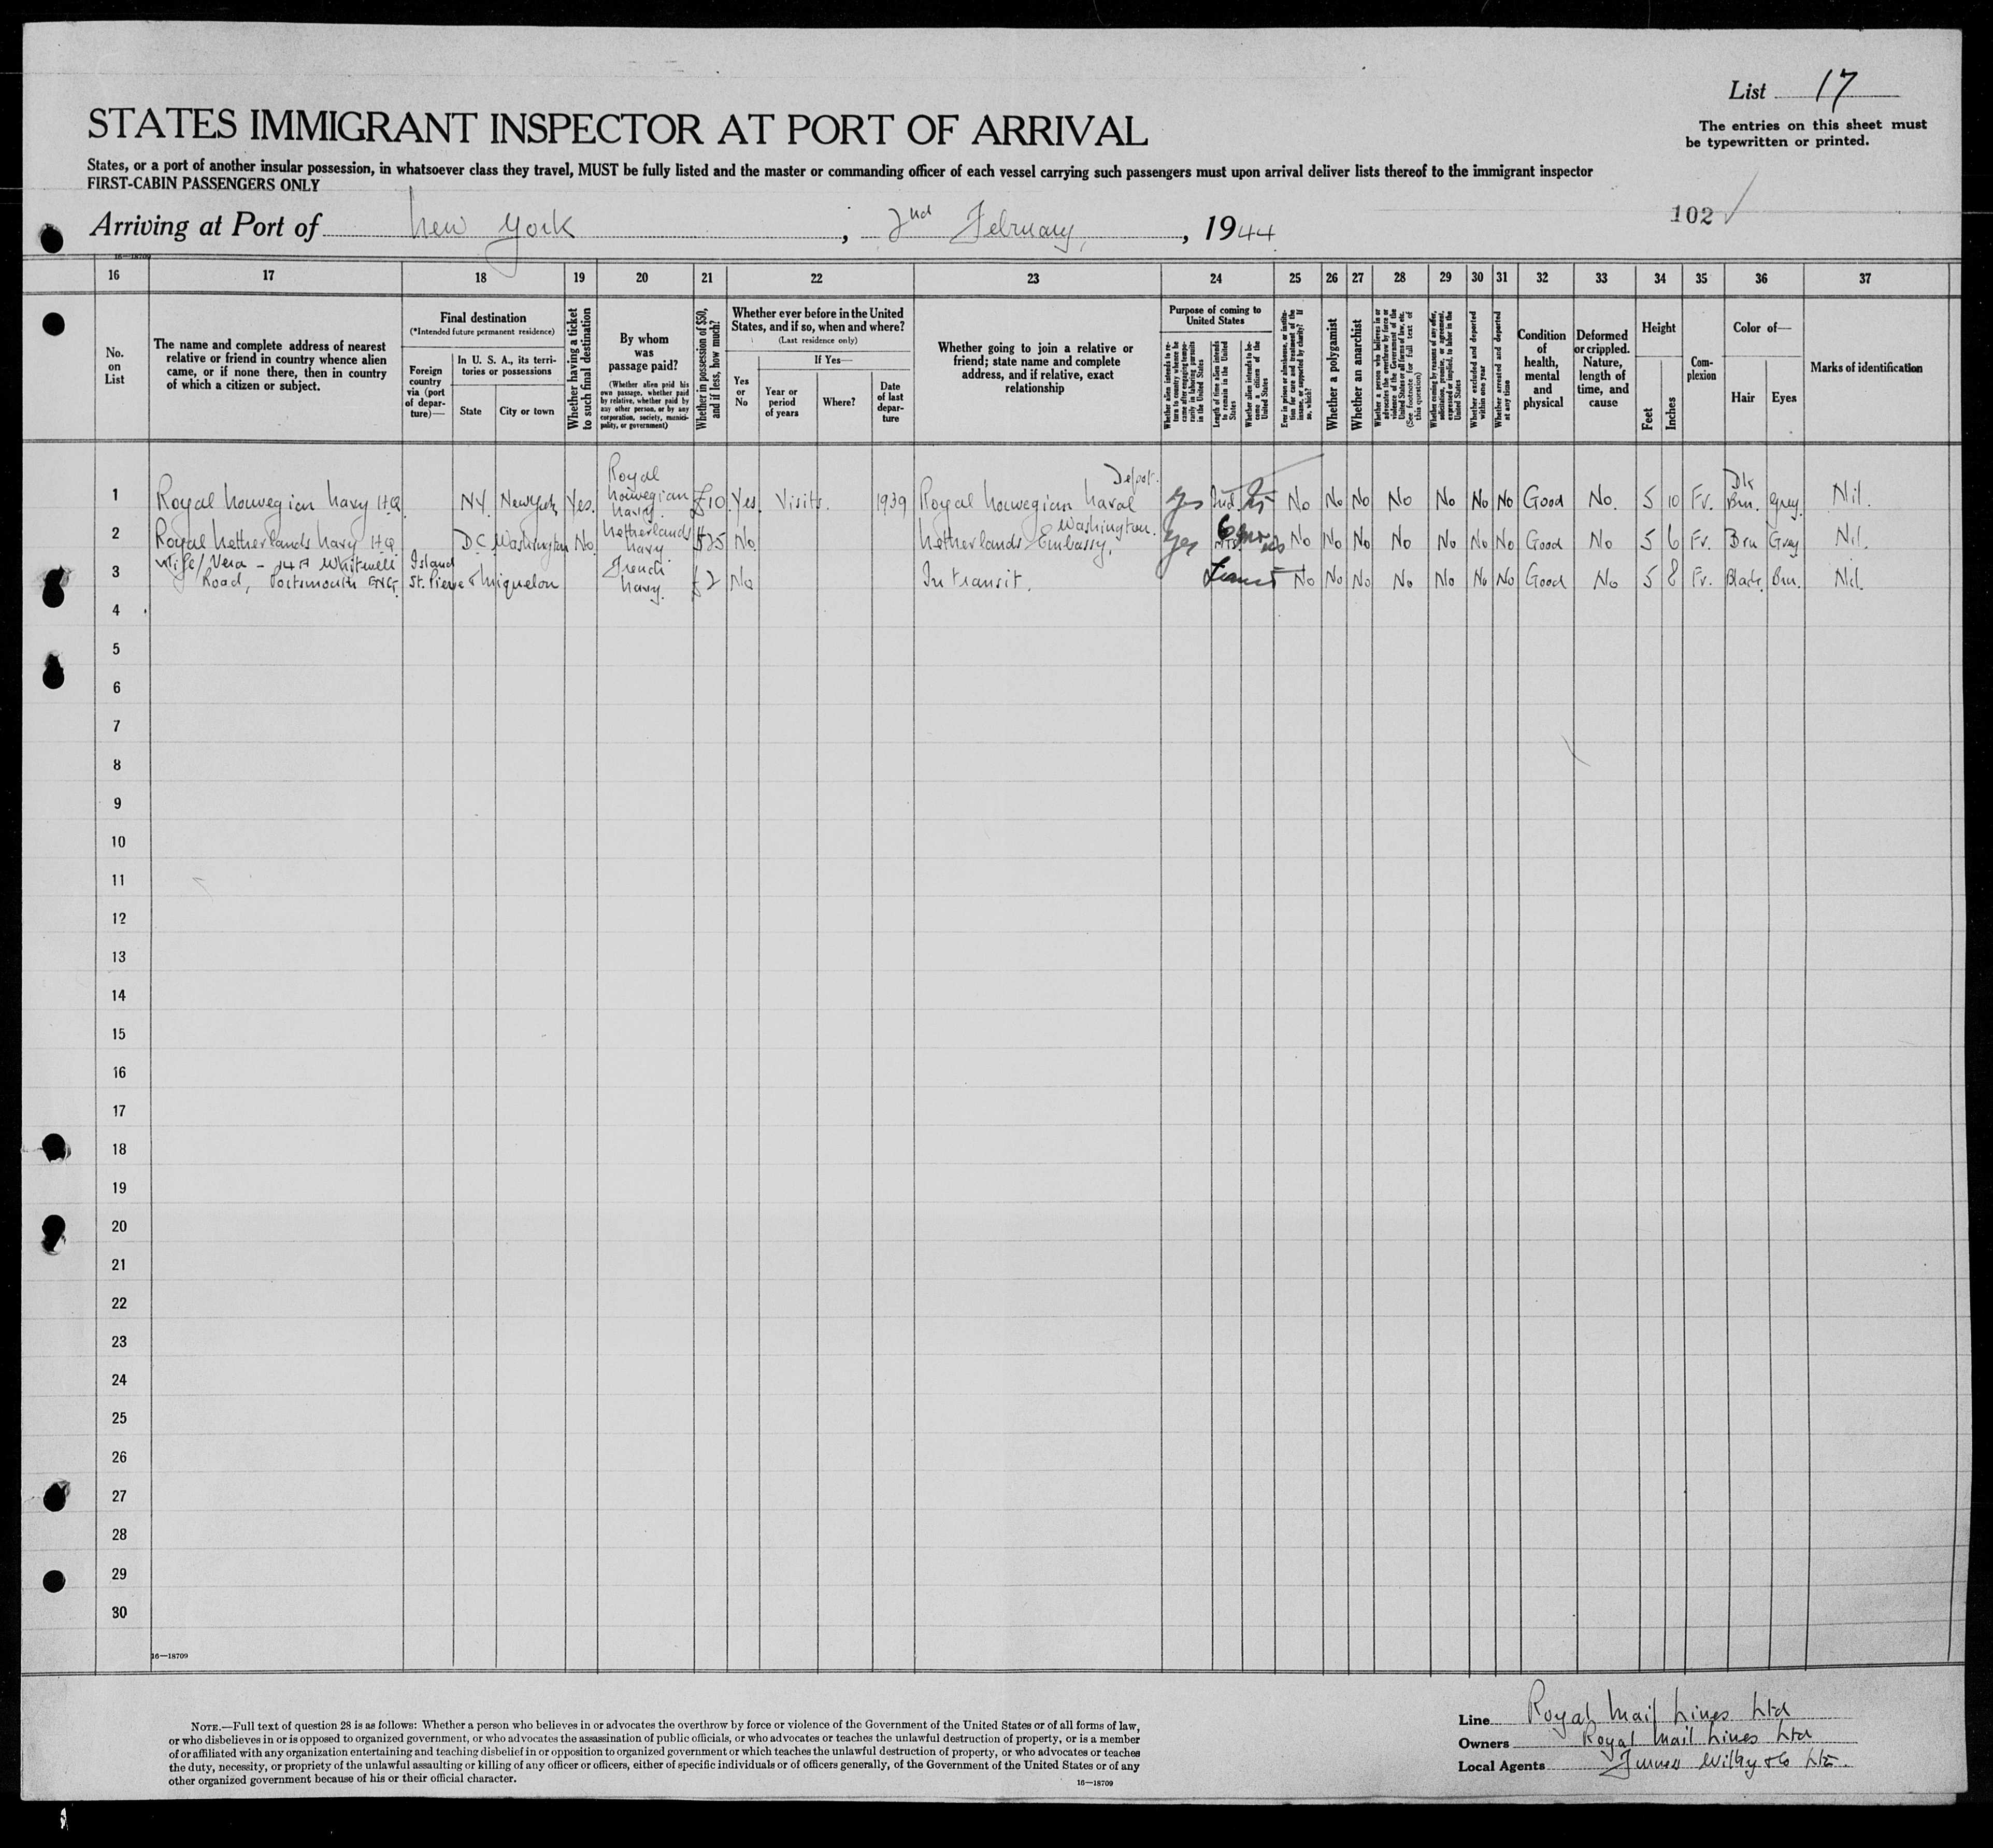 List 17
The entries on this sheet must
be typewritten or printed.
STATES IMMIGRANT INSPECTOR AT PORT OF ARRIVAL
States, or a port of another insular possession, in whatsoever class they travel, MUST be fully listed and the master or commanding officer of each vessel carrying such passengers must upon arrival deliver lists thereof to the immigrant inspector
FIRST-CABIN PASSENGERS ONLY
102
Arriving at Port of New York, 2nd February, 1944
16—18709
16 17 18 19 20 21 22 23 24 25 26 27 28 29 30 31 32 33 34 35 36 37
No. on List
The name and complete address of nearest
relative or friend in country whence alien
came, or if none there, then in country
of which a citizen or subject.
Final destination
(*Intended future permanent residence)
Foreign
country
via (port
of depar-
ture)—
In U. S. A., its terri-
tories or possessions
State
City or town
Whether having a ticket
to such final destination
By whom
was
passage paid?
(Whether alien paid his
own passage, whether paid
by relative, whether paid by
any other person, or by any
corporation, society, munici-
pality, or government)
Whether in possession of $50,
and if less, how much?
Whether ever before in the United
States, and if so, when and where?
(Last residence only)
Yes
or
No
If Yes—
Year or
period
of years
Where?
Date
of last
depar-
ture
Whether going to join a relative or
friend; state name and complete
address, and if relative, exact
relationship
Purpose of coming to
United States
Whether alien intends to re-
turn to country whence he
came after engaging tempo-
rarily in laboring pursuits
in the United States
Length of time alien intends
to remain in the United
States
Whether alien intends to be-
come a citizen of the
United States
Ever in prison or almshouse, or institu-
tion for care and treatment of the
insane, or supported by charity? If
so, which?
Whether a polygamist
Whether an anarchist
Whether a person who believes in or
advocates the overthrow by force or
violence of the Government of the
United States or all forms of law, etc.
(See footnote for full text of
this question)
Whether coming by reasons of any offer,
solicitation, promise, or agreement,
expressed or implied, to labor in the
United States
Whether excluded and deported
within one year
Whether arrested and deported
at any time
Condition
of
health,
mental
and
physical
Deformed
or crippled.
Nature,
length of
time, and
cause
Height
Feet
Inches
Com-
plexion
Color of—
Hair
Eyes
Marks of identification
1 Royal Norwegian Navy HQ. NY. New York Yes. Royal Norwegian Navy. £10 Yes. Visits. 1939 Royal Norwegian Naval Depot. Yes Ind. No No No No No No No Good No. 5 10 Fr. Dk Brn. Grey. Nil.
2 Royal Netherlands Navy HQ. D.C. Washington No. Netherlands Navy. No. Netherlands Embassy, Washington. Yes 6 No No No No No No No Good No 5 6 Fr. Brn Grey Nil.
3 Wife/ Vera - 147 Whitwell Road, Portsmouth ENG. Island St. Pierre & Miquelon French Navy. £2 No In transit. No No No No No No No Good No 5 8 Fr. Black Brn. Nil.
4
5
6
7
8
9
10
11
12
13
14
15
16
17
18
19
20
21
22
23
24
25
26
27
28
29
30
16—18709
NOTE.—Full text of question 28 is as follows: Whether a person who believes in or advocates the overthrow by force or violence of the Government of the United States or of all forms of law,
or who disbelieves in or is opposed to organized government, or who advocates the assassination of public officials, or who advocates or teaches the unlawful destruction of property, or is a member
of or affiliated with any organization entertaining and teaching disbelief in or opposition to organized government or which teaches the unlawful destruction of property, or who advocates or teaches
the duty, necessity, or propriety of the unlawful assaulting or killing of any officer or officers, either of specific individuals or of officers generally, of the Government of the United States or of any
other organized government because of his or their official character.
16—18709
Line Royal Mail Lines Ltd
Owners Royal Mail Lines Ltd
Local Agents Furness Withy & Co Ltd.